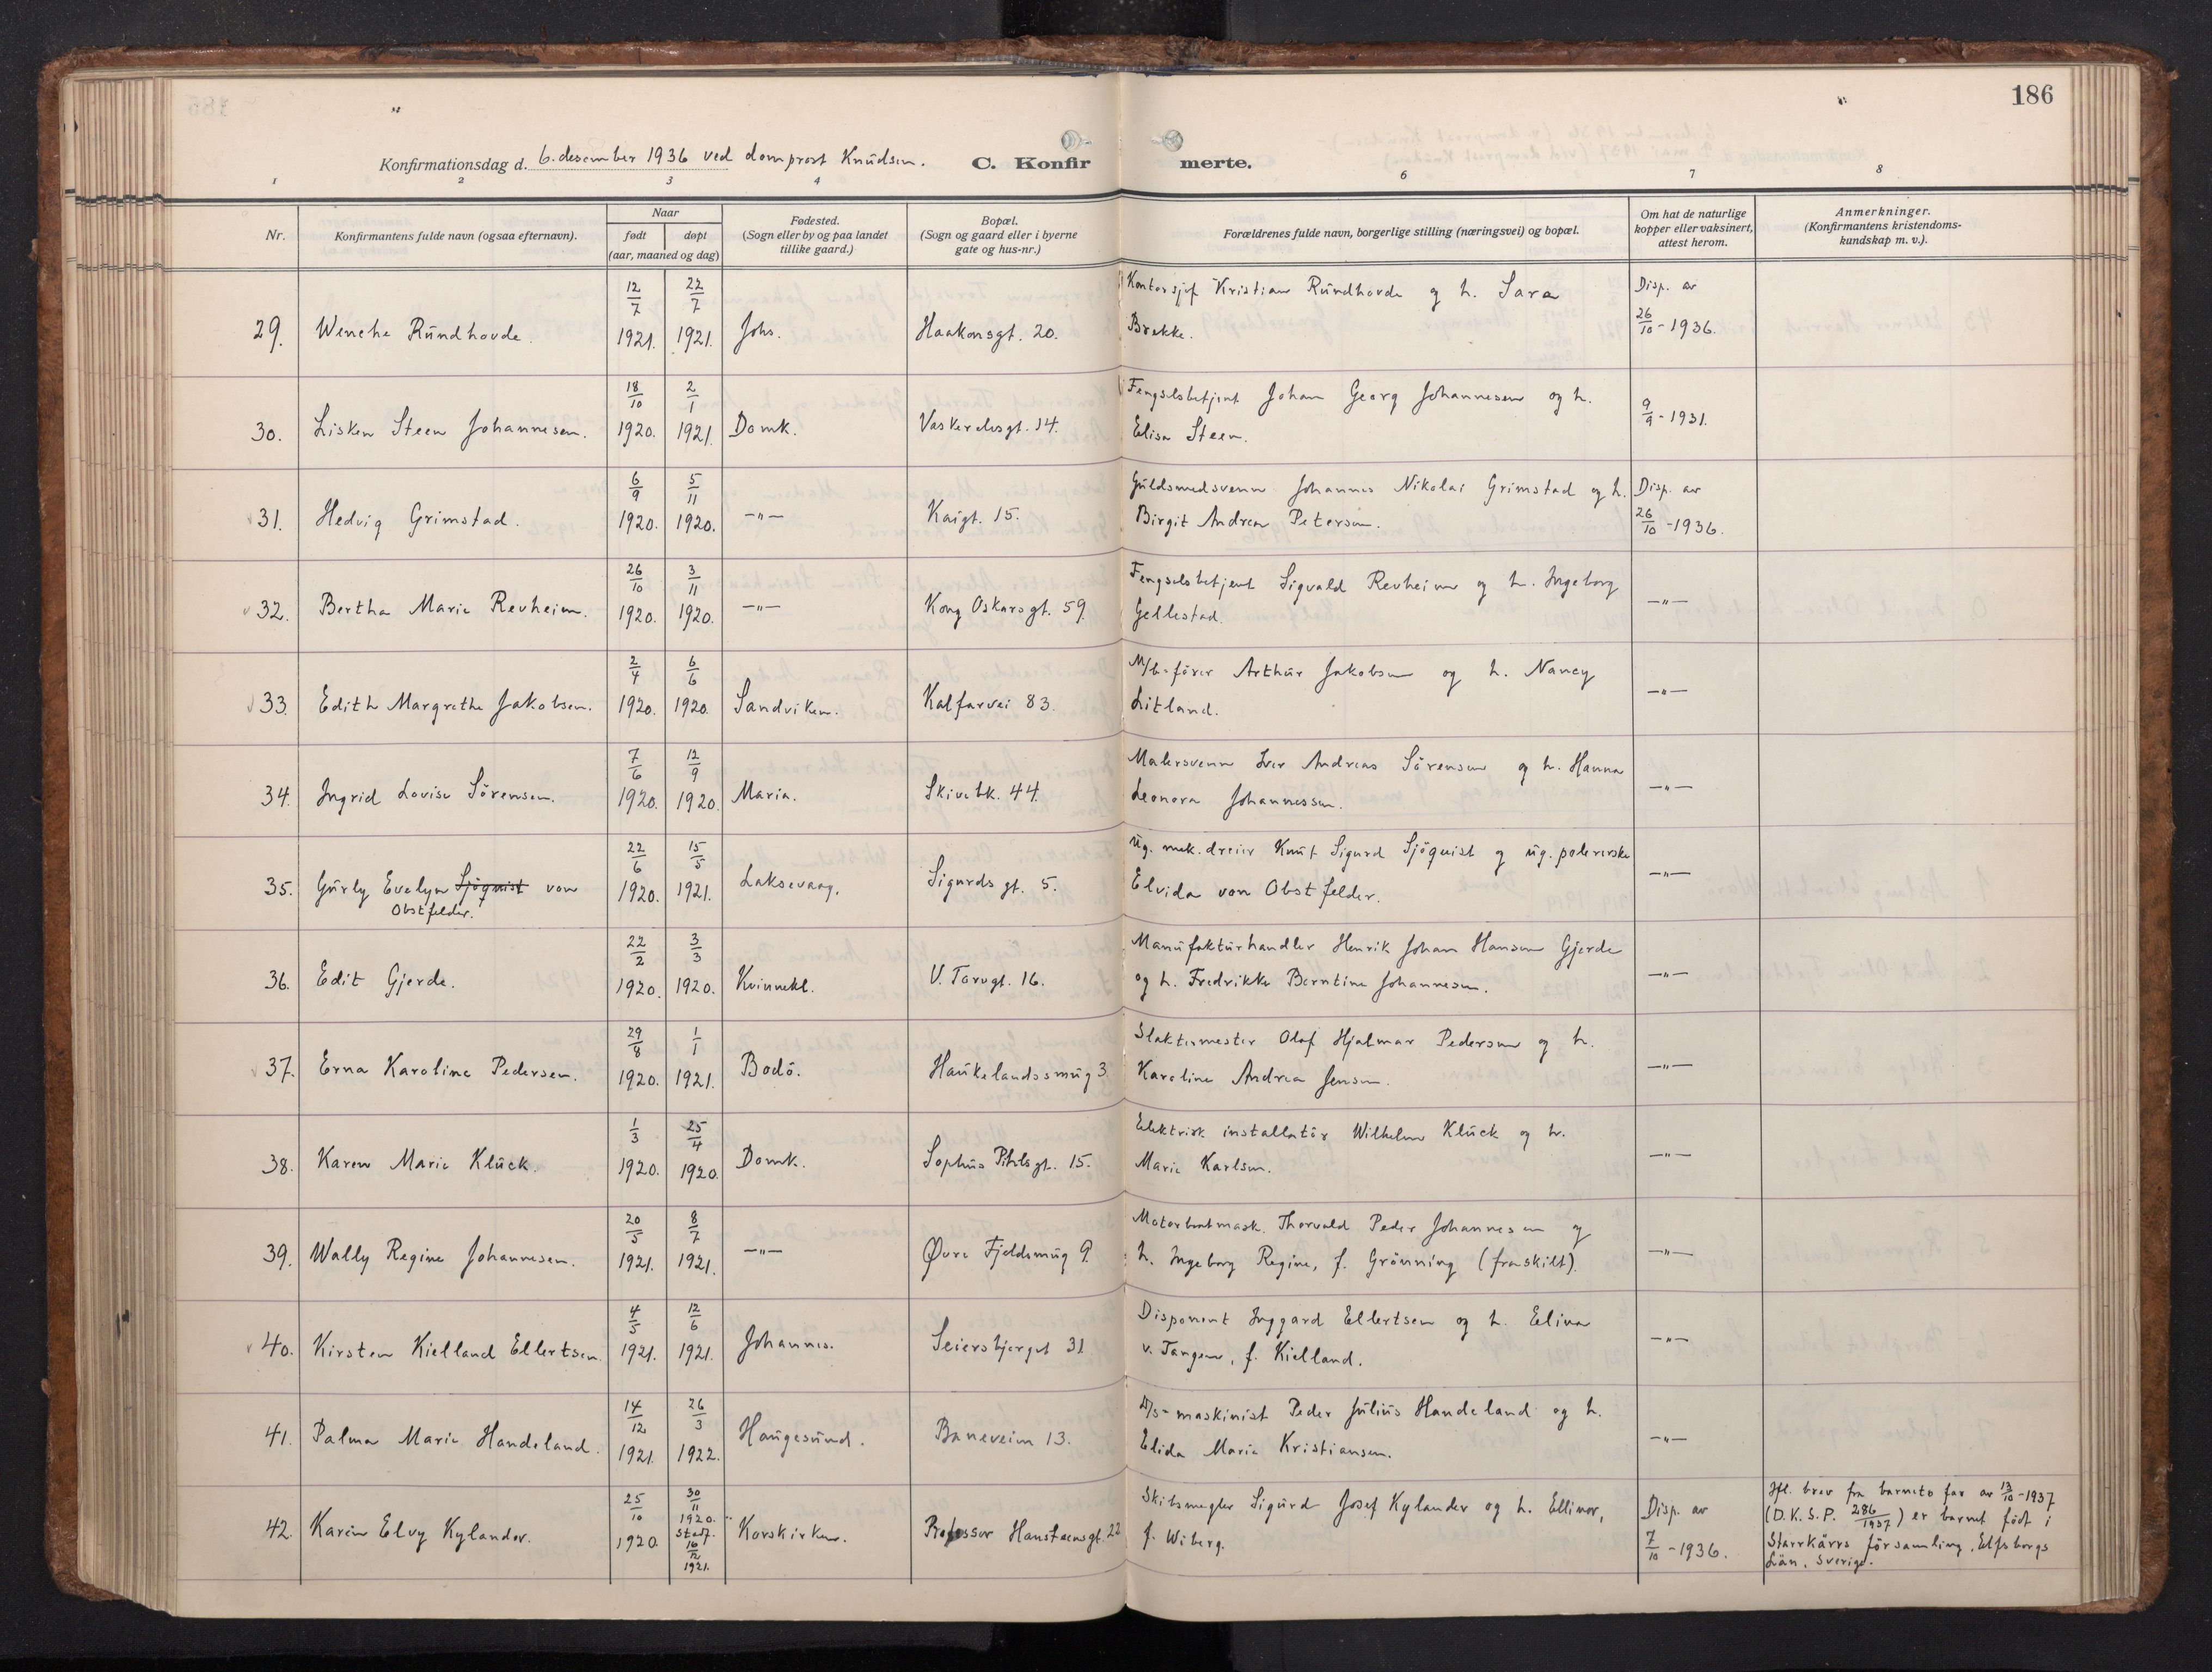 186
Konfirmationsdag d. 6. desember 1936 ved domprost Knudsen. C. Konfirmerte.
1 2 3 4 6 7 8
Nr. Konfirmantens fulde navn (ogsaa efternavn). Naar født døpt (aar, maaned og dag) Fødested. (Sogn eller by og paa landet tillike gaard.) Bopæl. (Sogn og gaard eller i byerne gate og hus-nr.) Forældrenes fulde navn, borgerlige stilling (næringsvei) og bopæl. Om hat de naturlige kopper eller vaksinert, attest herom. Anmerkninger. (Konfirmantens kristendomskundskap m. v.).
29. Wenche Rundhovde. 12/7 1921. 22/7 1921. Johs. Haakonsgt. 20. Kontorsjef Kristian Rundhovde og h. Sara Brekke. Disp. av 26/10 - 1936.
30. Lisken Steen Johannesen. 18/10 1920. 2/1 1921. Domk. Vaskerelvsgt. 14. Fengselsbetjent Johan Georg Johannesen og h. Elisa Steen. 9/9 - 1931.
31. Hedvig Grimstad. 6/9 1920. 5/11 1920. —"— Kaigt. 15. Guldsmedsvenn Johannes Nikolai Grimstad og h. Birgit Andrea Petersen. Disp. av 26/10 - 1936.
32. Bertha Marie Revheim. 26/10 1920. 3/11 1920. —"— Kong Oskarsgt. 59. Fengselsbetjent Sigvald Revheim og h. Ingeborg Gellestad. —"—
33. Edith Margrethe Jakobsen. 2/4 1920. 6/6 1920. Sandviken. Kalfarvei 83. M/b-fører Arthur Jakobsen og h. Nancy Litland. —"—
34. Ingrid Lovise Sörensen. 7/6 1920. 12/9 1920. Maria. Skivebk. 44. Malersvenn Iver Andreas Sörensen og h. Hanna Leonora Johannessen. —"—
35. Gurly Evelyn Sjöquist von Obstfelder. 22/6 1920. 15/5 1921. Laksevaag. Sigurds gt. 5. Ug. mek. dreier Knut Sigurd Sjöquist og ug. polererske Elvida von Obstfelder. —"—
36. Edit Gjerde. 22/2 1920. 3/3 1920. Kvinnekl. V. Torvgt. 16. Manufakturhandler Henrik Johan Hansen Gjerde og h. Fredrikke Berntine Johannesen. —"—
37. Erna Karoline Pedersen. 29/8 1920. 1/1 1921. Bodö. Haukelandssmug 3. Slaktermester Olaf Hjalmar Pedersen og h. Karoline Andrea Jensen. —"—
38. Karen Marie Kluck. 1/3 1920. 25/4 1920. Domk. Sophus Pihls gt. 15. Elektrisk installatör Wilhelm Kluck og h. Marie Karlsen. —"—
39. Wally Regine Johannesen. 20/5 1921. 8/7 1921. —"— Øvre Fjeldsmug 9. Motorbåtmask. Thorvald Peder Johannesen og h. Ingeborg Regine, f. Grönning (fraskilt). —"—
40. Kirsten Kielland Ellertsen. 4/5 1921. 12/6 1921. Johannes. Seiersbjerget 31. Disponent Inggard Ellertsen og h. Elina v. Tangen, f. Kielland. —"—
41. Palma Marie Handeland. 14/12 1921. 26/3 1922. Haugesund. Baneveien 13. D/s-maskinist Peder Julius Handeland og h. Elida Marie Kristiansen. —"—
42. Karin Elvy Kylander. 25/10 1920. 30/11 1920. stadf. 16/12 1921. Korskirken. Professor Hansteensgt. 22 Skibsmegler Sigurd Josef Kylander og h. Ellinor, f. Wiberg. Disp. av 7/10 - 1936. Ifl. brev fra barnets far av 13/10 - 1937 (D.K.S.P. 286/1937) er barnet födt i Starrkärrs församling, Elfsborgs Län, Sverige.